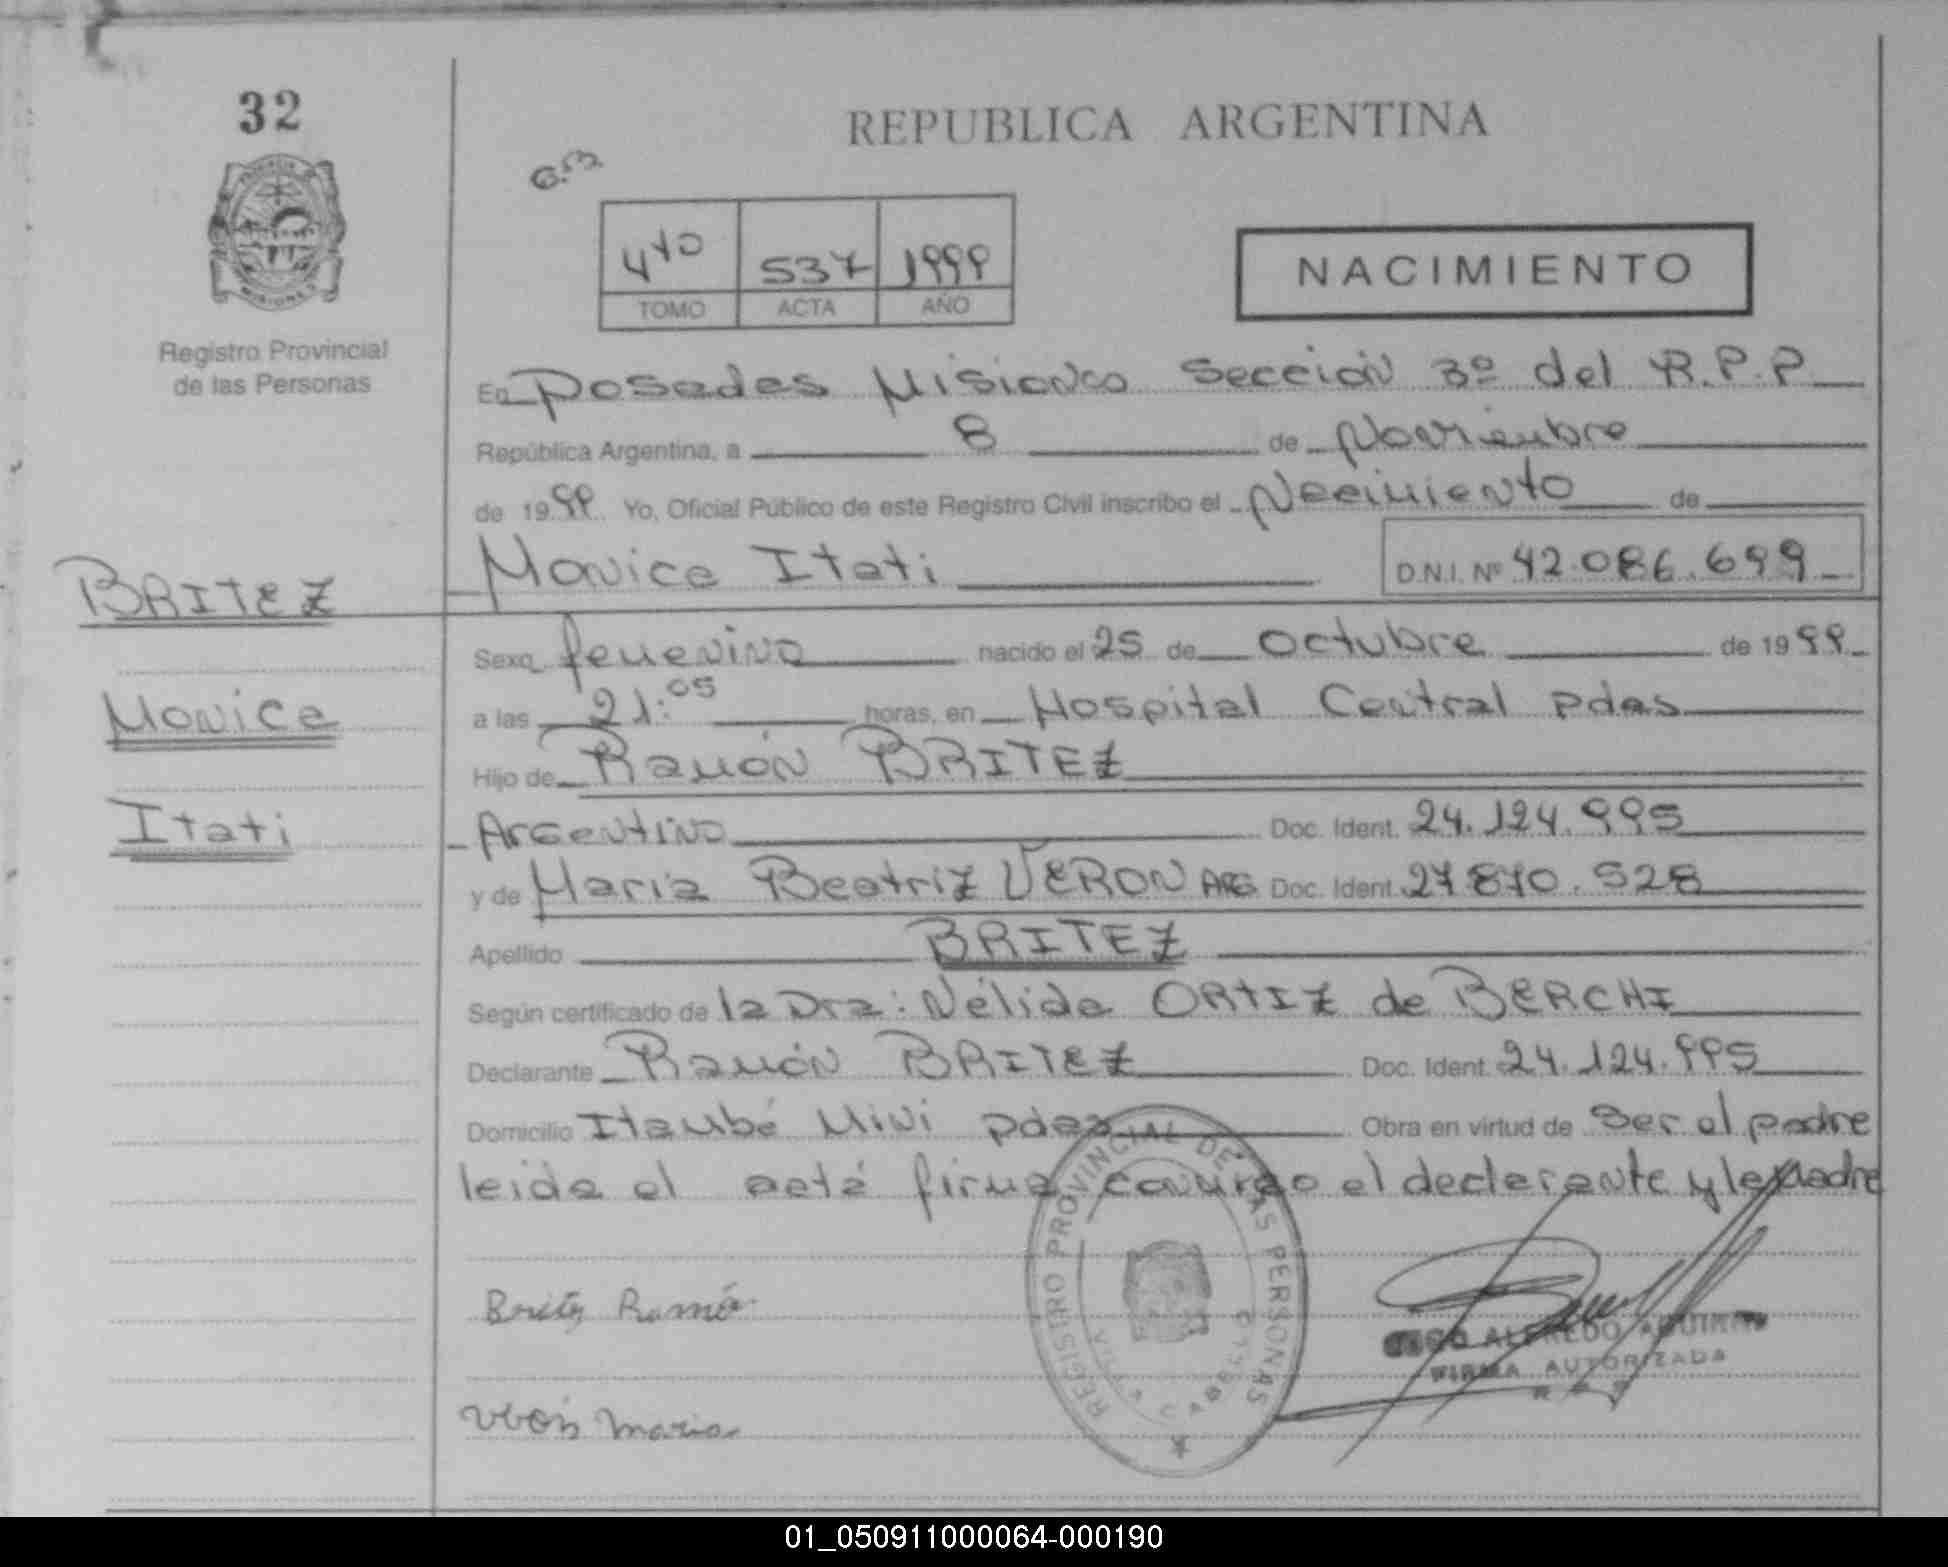 32
REPUBLICA ARGENTINA
4to 537 1999
TOMO ACTA AÑO
NACIMIENTO
MISIONES
Registro Provincial
de las Personas
En Posadas Misiones Sección 3º del R.P.P
República Argentina, a 8 de Noviembre
de 1999 Yo, Oficial Público de este Registro Civil inscribo el Nacimiento de
Monica Itati D.N.I. Nº 42.086.699
BRITEZ
Monica
Itati
Sexo femenino nacido el 25 de Octubre de 1999
a las 21:05 horas, en Hospital Central pdas
Hijo de Ramón BRITEZ
Argentino Doc. Ident. 24.124.995
y de Maria Beatriz VERON ARG Doc. Ident. 27870.528
Apellido BRITEZ
Según certificado de la Dra: Nélida ORTIZ de BERCHI
Declarante Ramón BRITEZ Doc. Ident. 24.124.995
Domicilio Itaembé Mini pdas Obra en virtud de ser el padre
leida el acta firma conmigo el declarante y la madre
REGISTRO PROVINCIAL DE LAS PERSONAS
Britez Ramó
ALFREDO
FIRMA AUTORIZADA
Maria
01_050911000064-000190